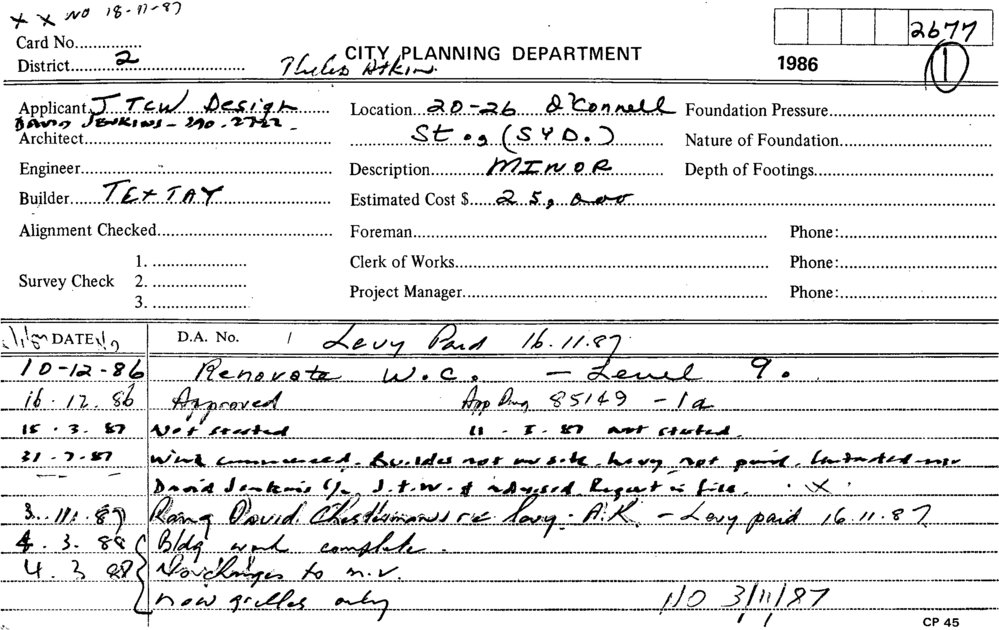 x x NO 18-11-87
2677
Card No.
CITY PLANNING DEPARTMENT
1986
1
District 2
Applicant J TCW Design
Location 20-26 O'Connell
Foundation Pressure
DAVID JENKINS - 290.2722
Architect
St. (SYD.)
Nature of Foundation
Engineer
Description MINOR
Depth of Footings
Builder TEXTAY
Estimated Cost $ 25,000
Alignment Checked
Foreman
Phone:
Survey Check 1.
Clerk of Works
Phone:
2.
Project Manager
Phone:
3.
DATE
D.A. No. / Levy Paid 16.11.87
10-12-86 Renovate W.C. - Level 9.
16.12.86 Approved App Dwg 85149 - 1a
15.3.87 Not started 11.5.87 not started.
31-7-87 Work commenced. Builder not on site. Levy not paid.
David Jenkins J.T.W. advised. Report in file. X
3.11.87 Rang David re levy. A.K. - Levy paid 16.11.87
4.3.88 Bldg work complete.
4.3.88 No changes to m.v.
new grilles only
NO 3/11/87
CP 45